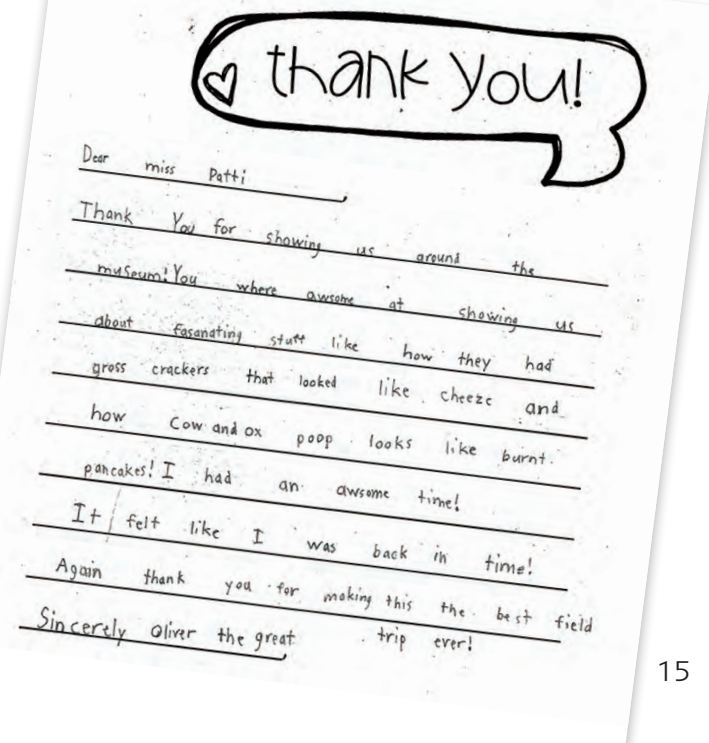 thank you!
Dear miss Patti,
Thank You for showing us around the
museum! You where awsome at showing us
about fasanating stuff like how they had
gross crackers that looked like cheeze and
how Cow and ox poop looks like burnt
pancakes! I had an awsome time!
It felt like I was back in time!
Again thank you for making this the best field
trip ever!
Sincerely Oliver the great,
15